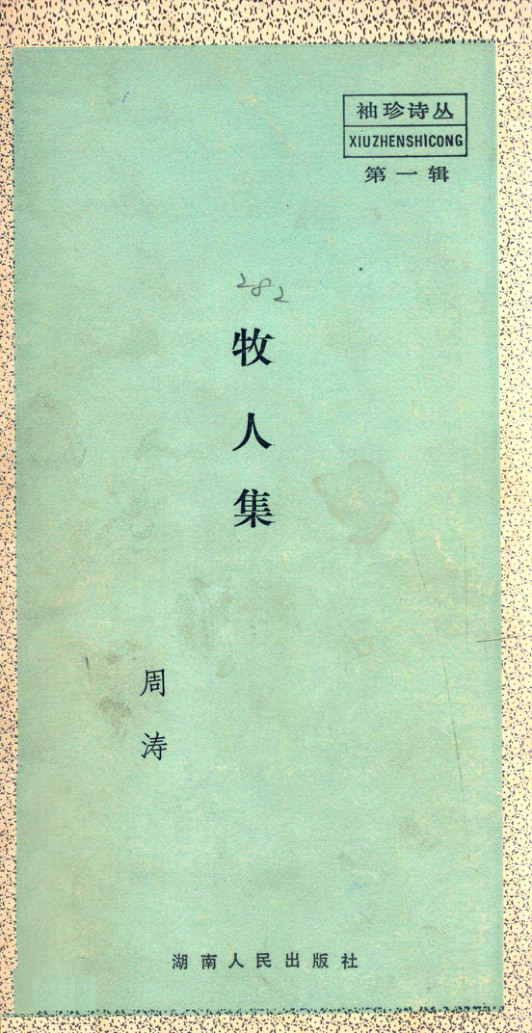 袖珍诗丛
XIUZHENSHICONG
第一辑
282
牧人集
周涛
湖南人民出版社